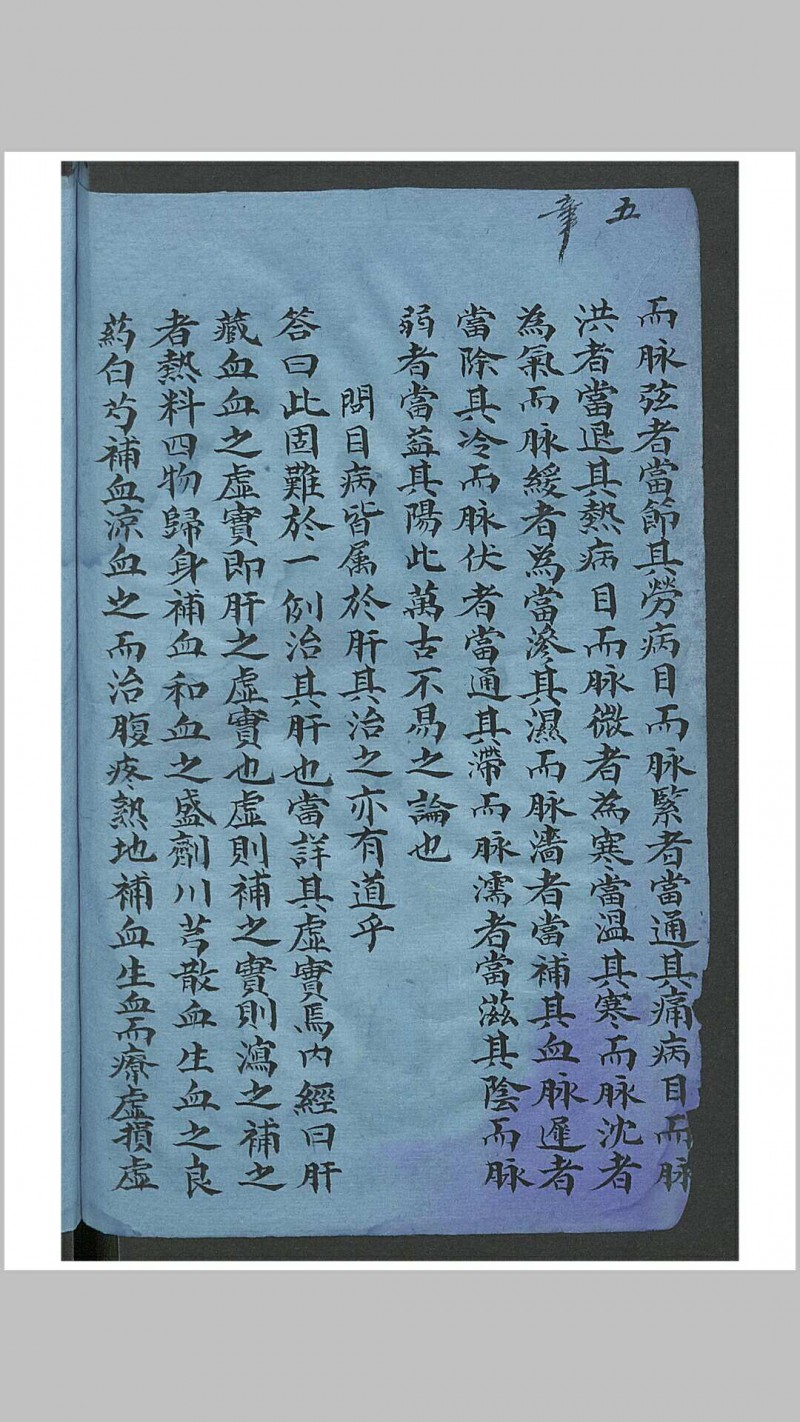 五章
而脉弦者當節其勞病目而脉緊者當通其痛病目而脉
洪者當退其熱病目而脉微者為寒當温其寒而脉沈者
為氣而脉緩者為當滲其濕而脉濇者當補其血脉遲者
當除其冷而脉伏者當通其滯而脉濡者當滋其陰而脉
弱者當益其陽此萬古不易之論也
問目病皆属於肝其治之亦有道乎
答曰此固難於一例治其肝也當詳其虛實焉内經曰肝
藏血血之虛實即肝之虛實也虛則補之實則瀉之補之
者熱料四物歸身補血和血之盛劑川芎散血生血之良
药白芍補血涼血之而治腹疼熟地補血生血而療虛損虛